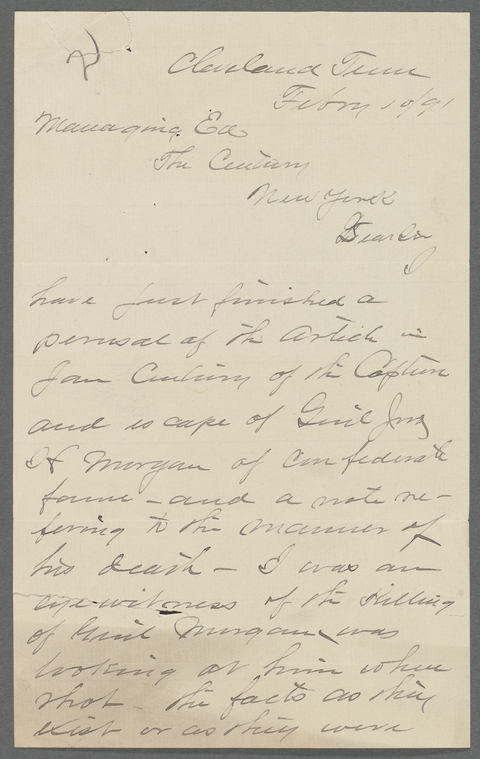 Cleveland Tenn
Febry 10/91
Managing Ed
The Century
New York
Dear Sir
I
have just finished a
perusal of the article in
Jan Century of the Capture
and escape of Genl Jno
H Morgan of confederate
fame - and a note re-
fering to the manner of
his death - I was an
eye-witness of the killing
of Genl Morgan, was
looking at him when
shot - the facts as they
exist or as they were